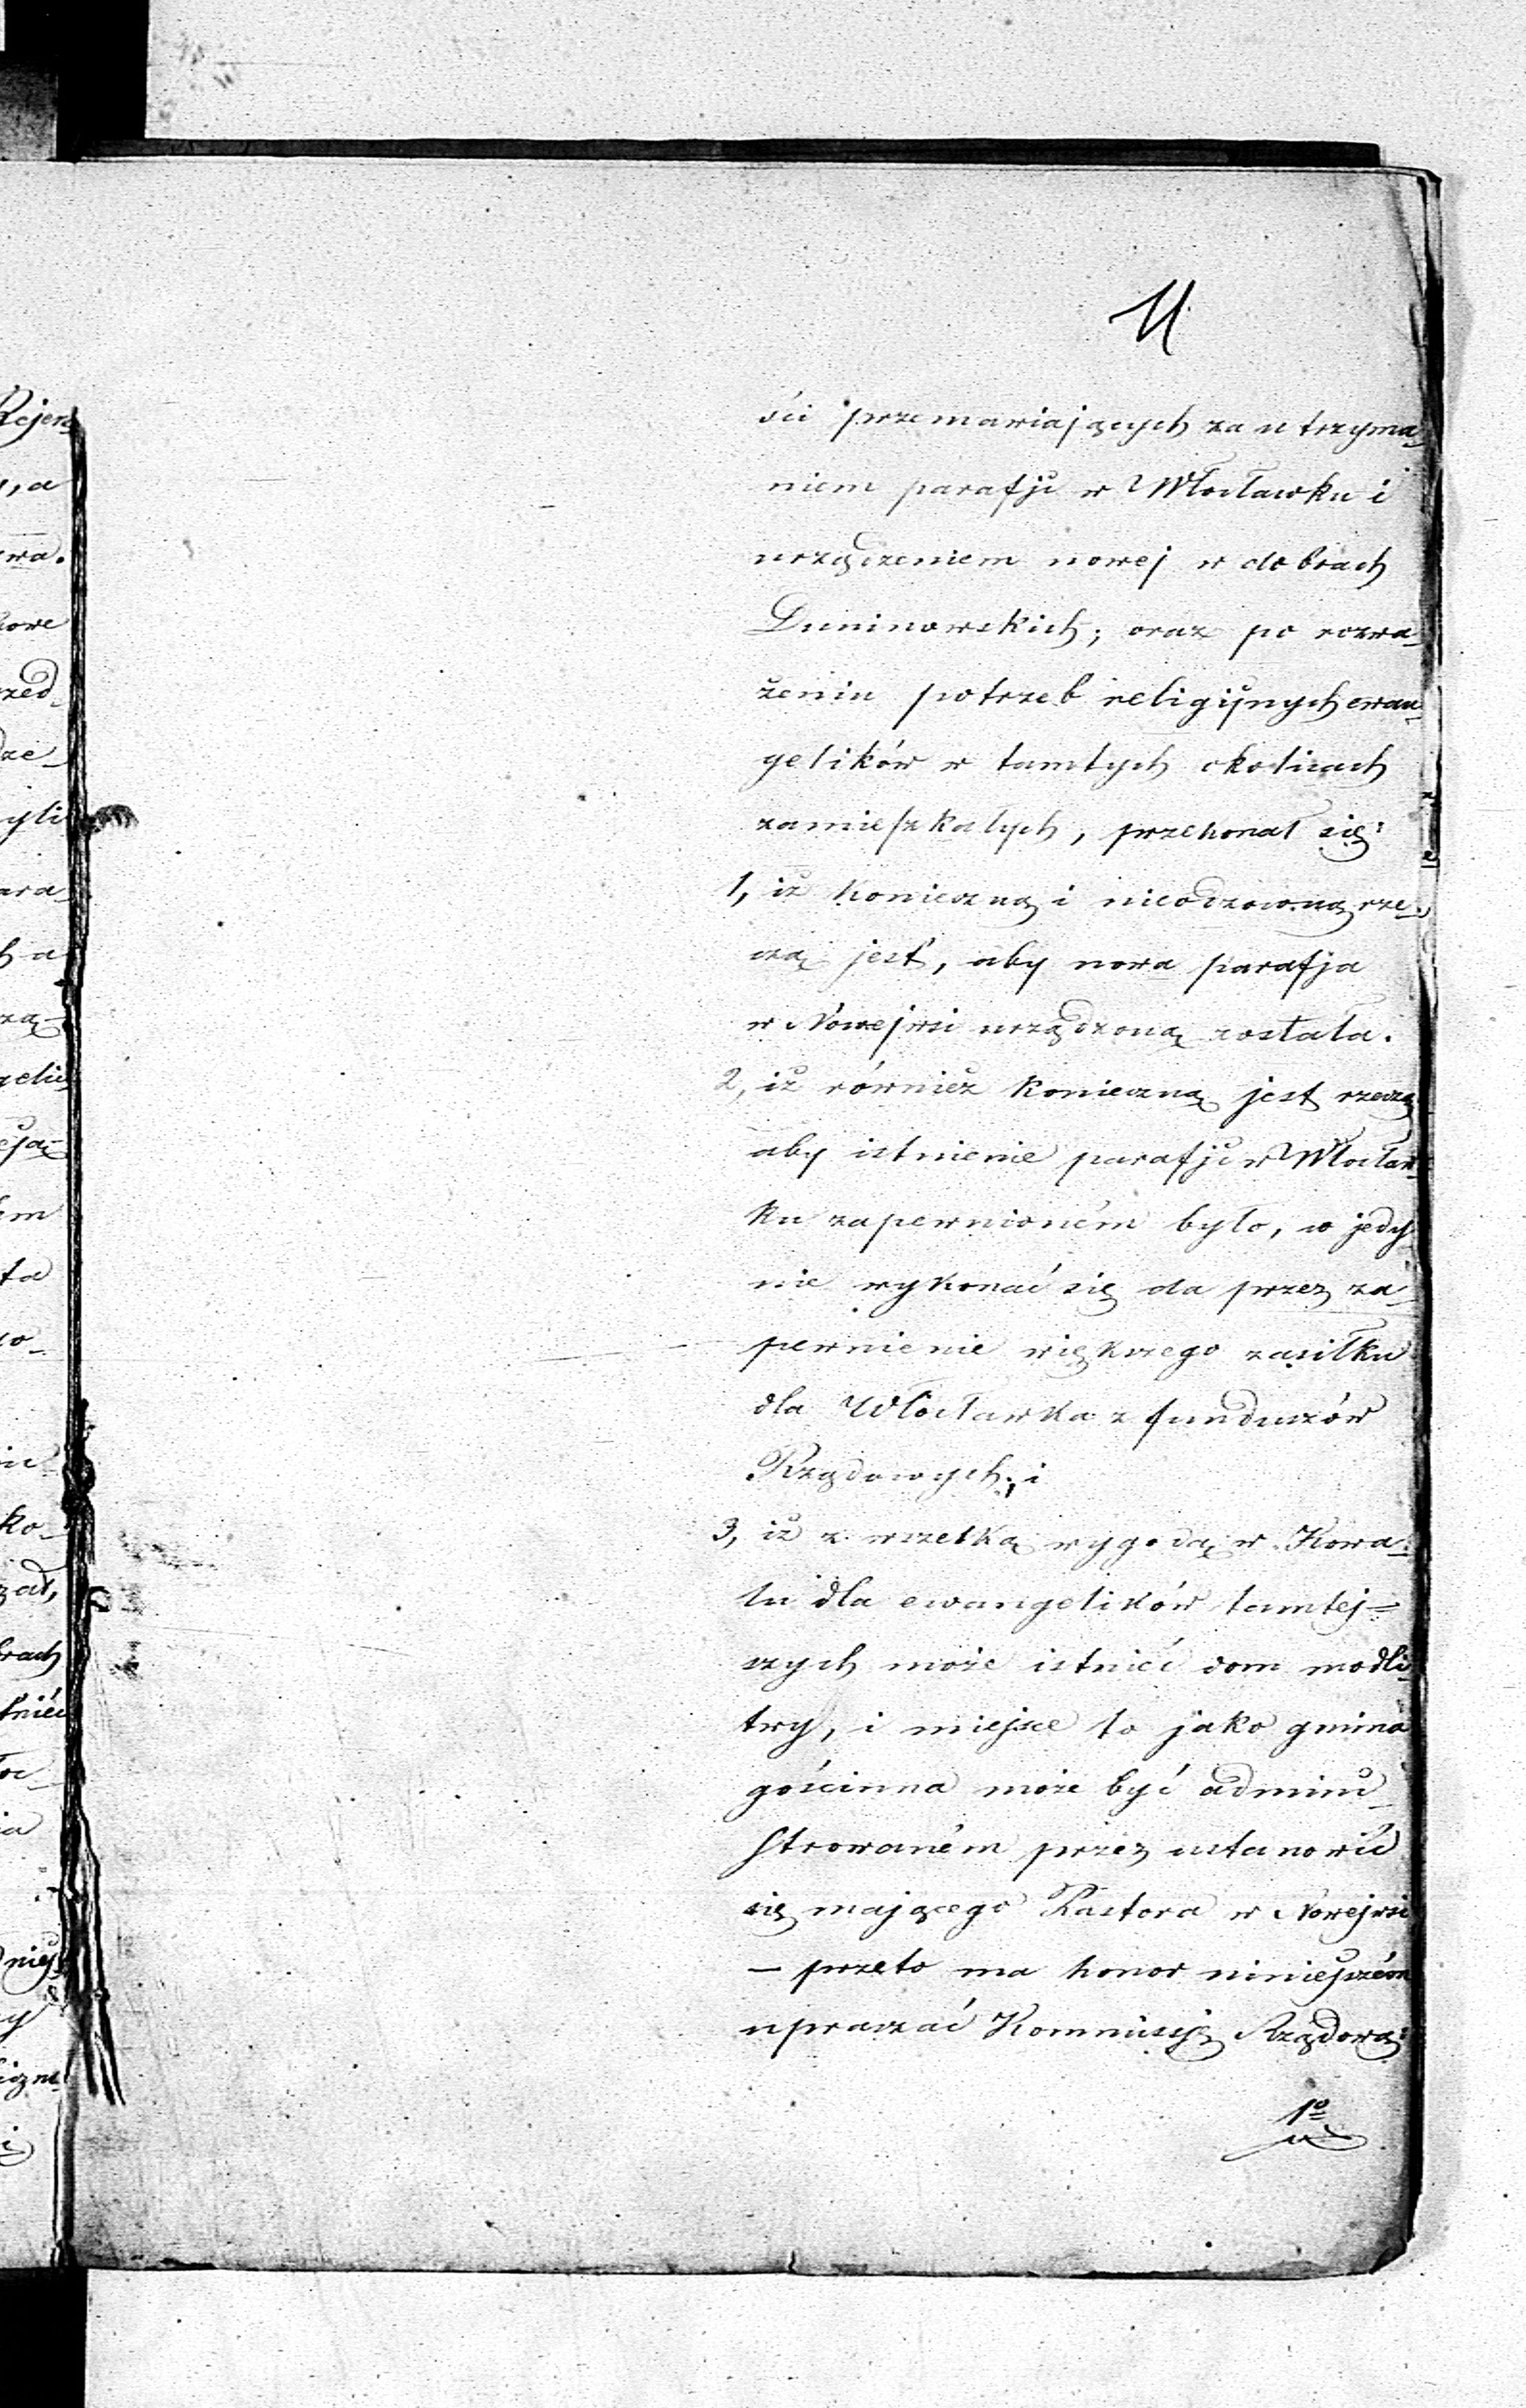 11
ści przemawiających za utrzyma-
niem parafji w Włocławku i
urządzeniem nowej w dobrach
Duninowskich; oraz po rozwa-
żeniu potrzeb religijnych ewan-
gelików w tamtych okolicach
zamieszkałych, przekonał się:
1, iż konieczną i nieodzowną rze-
czą jest, aby nowa parafja
w Nowejwsi urządzoną została.
2, iż również konieczną jest rzeczą
aby istnienie parafji w Włocław-
ku zapewnioném było, co jedy-
nie wykonać się da przez za-
pewnienie większego zasiłku
dla Włocławka z funduszów
Rządowych; i
3, iż z wszelką wygodą w Kowa-
lu dla ewangelików tamtej=
szych może istnieć dom modli-
twy, i miejsce to jako gmina
gościnna może być admini-
strowaném przez ustanowić
się mającego Pastora w Nowejwsi
— przeto ma honor niniejszém
upraszać Kommissję Rządową:
1º
Rejen
, a
wa.
owe
zed-
dze-
yli
ara-
h a
zą-
gelic
em
ta
ko-
rach
tnieć
ia
niej